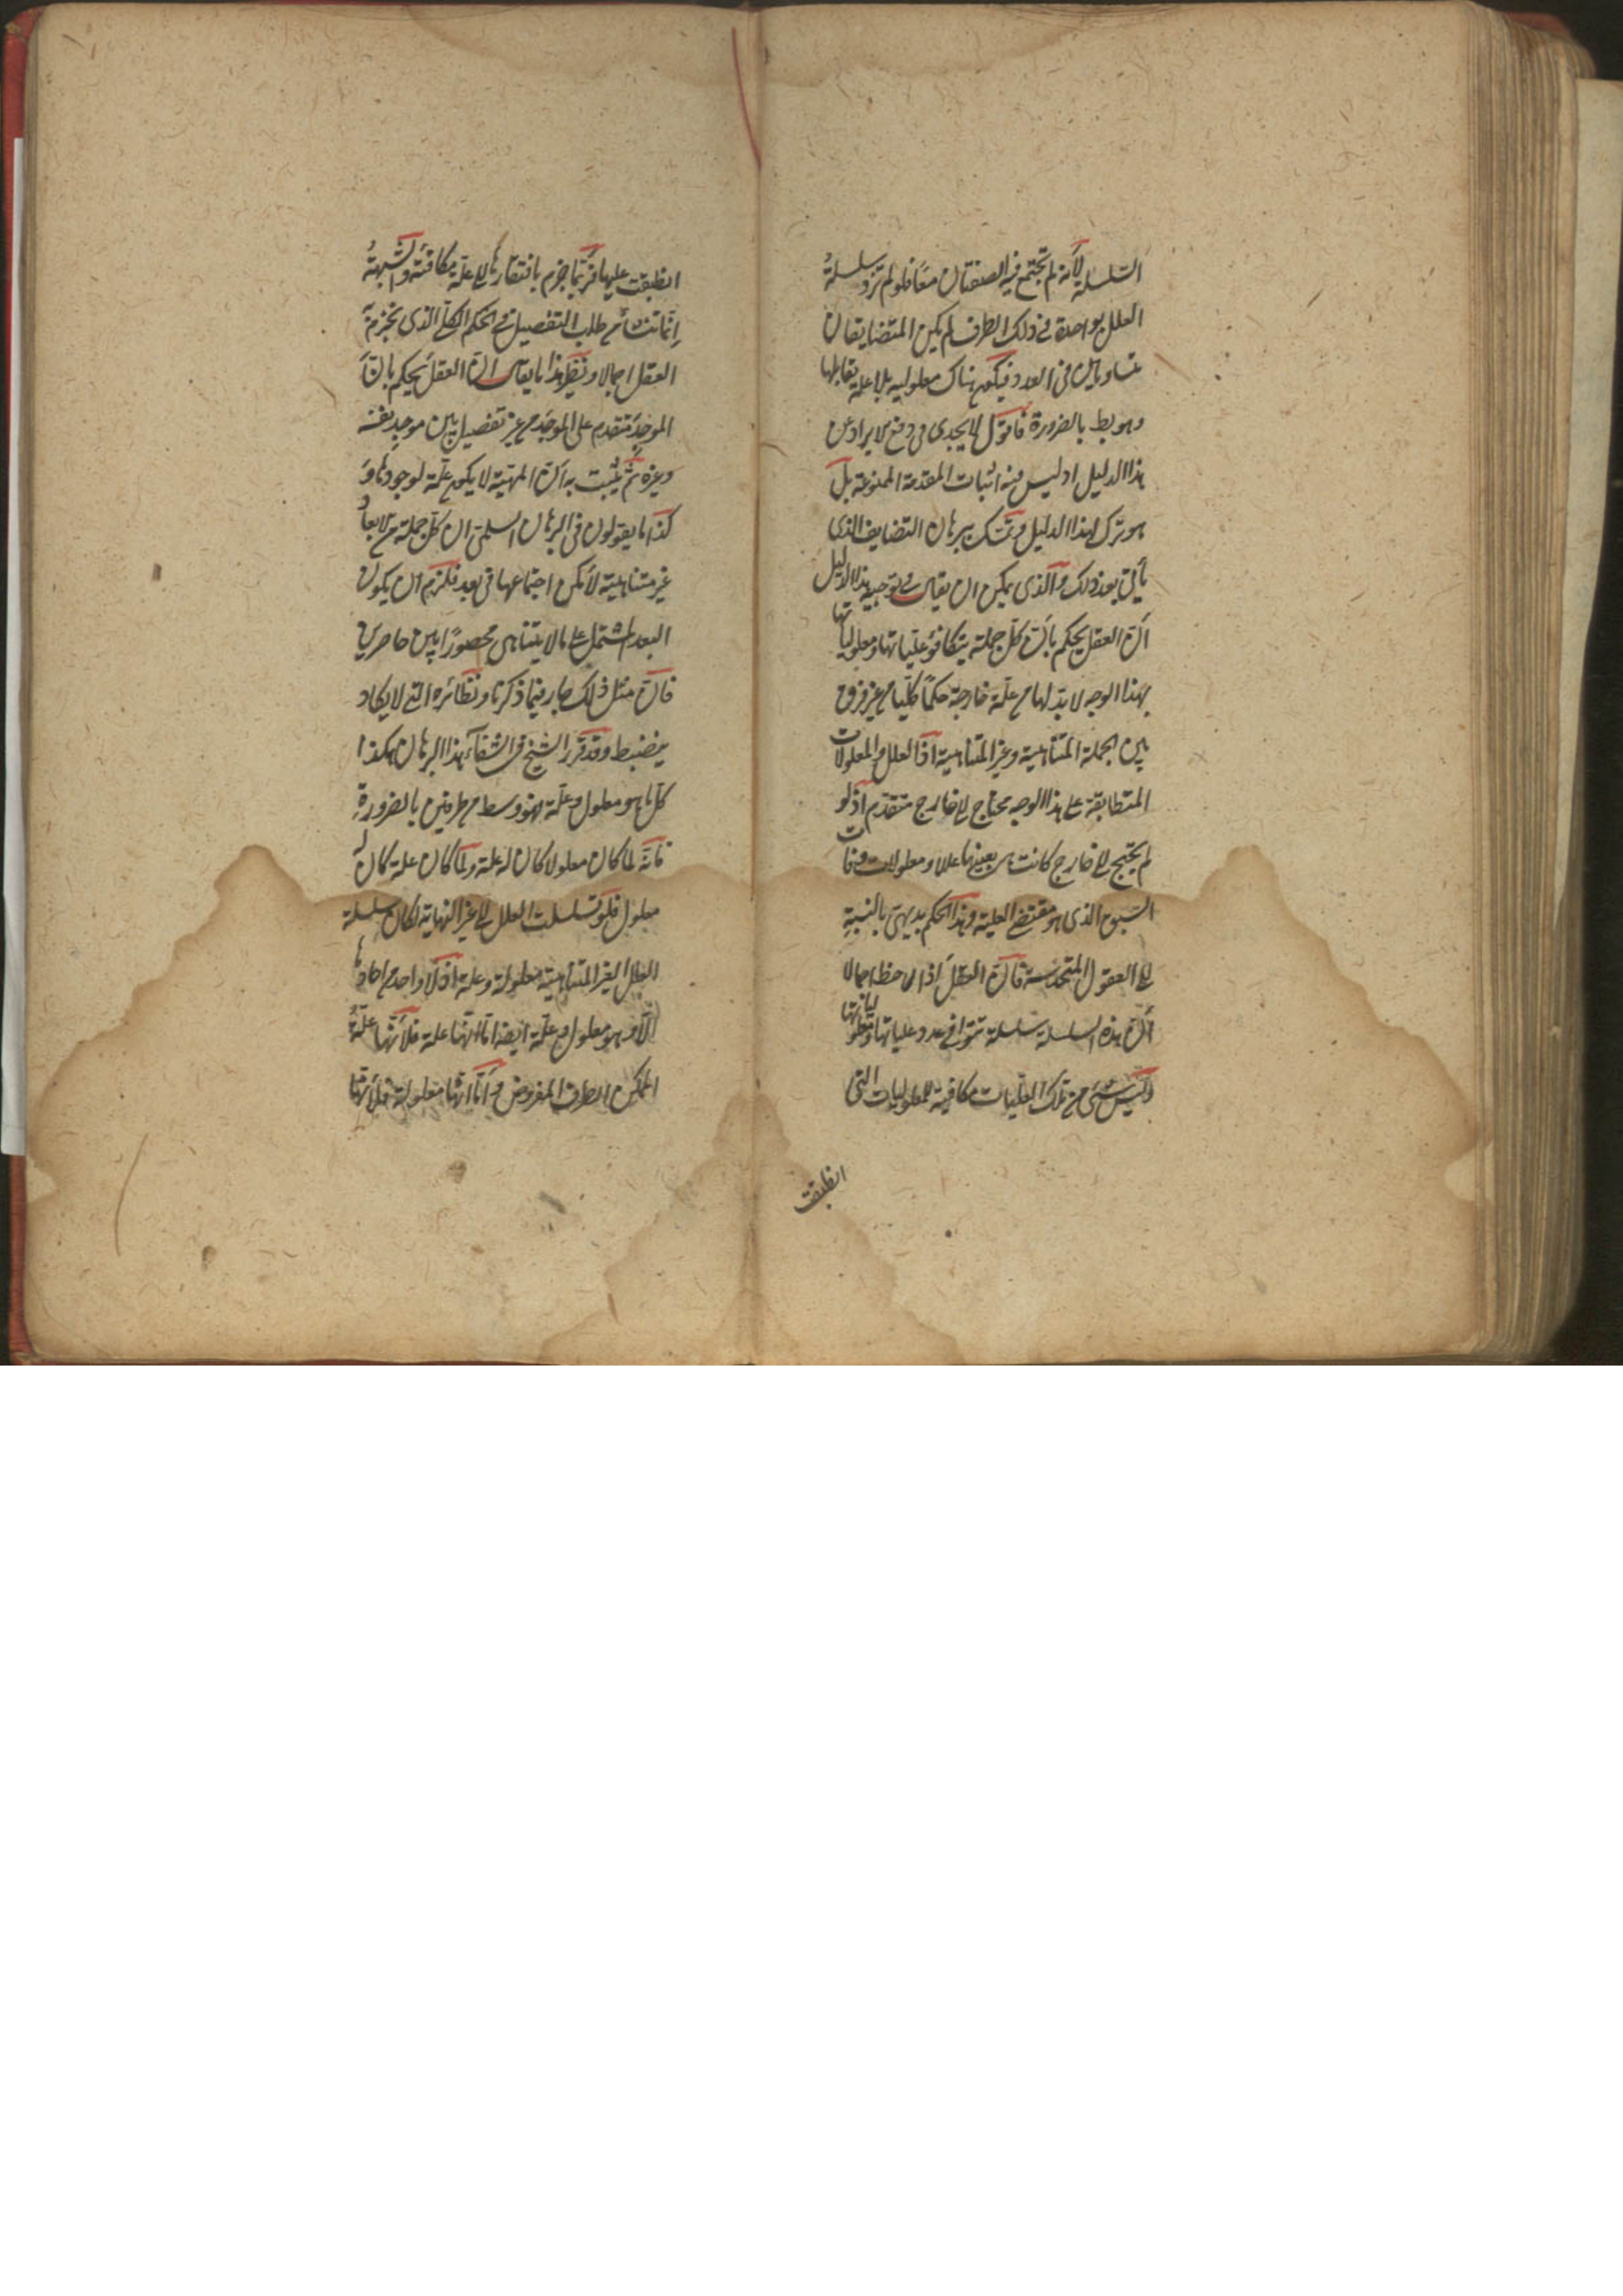 السلسلة لأنه لم تجتمع فيه الصفتان معًا فلو لم تزد سلسلةُ
العلل بواحدة فى ذلك الطرف لم يكن المتضايفان
متساويين فى العدد فيكون هناك معلولية بلا علية تقابلها
وهو بط بالضرورة فاقول لا يجدى فى دفع الايراد عن
هذا الدليل اذ ليس فيه اثبات المقدمة الممنوعة بل
هو ترك لهذا الدليل وتمسك ببرهان التضايف الذى
يأتى بعد ذلك والذى يمكن ان يقال فى توجيه هذا الدليل
انّ العقل يحكم بانّ كلّ جملة يتكافؤ علّياتها ومعلولياتها
بهذا الوجه لا بدّ لها من علّة خارجة حكمًا كلّيا من غير فرق
بين الجملة المتناهية وغير المتناهية اذ العلل والمعلولات
المتطابقة على هذا الوجه محتاج الى خارج متقدّم اذ لو
لم يحتج الى خارج كانت هى بعينها عللا ومعلولات وفات
السبق الذى هو مقتضى العلية وهذا الحكم بديهى بالنسبةِ
الى العقول المتحدسة فانّ العقلَ اذا لاحظ اجمالا
أنّ هذه السلسلة سلسلة تتوافى عدد علياتها ومعلولياتها
وليس شئ من تلك العلّيات مكافية للمعلوليات التى
انطبقت
انطبقت عليها فربّما جزم بافتقارها الى علّة مكافئة والشبهةُ
إنّما تنشأ من طلب التفصيل فى الحكم الكلّى الذى يجزم به
العقل اجمالا ونظير هذا ما يقال انّ العقلَ يحكم بانّ
الموجِدَ متقدم على الموجَد من غير تفصيل بين موجِد نفسه
وغيره ثمّ يُثبت به انّ المهيّة لا يكون علّة لوجودها وَ
كذا ما يقولون فى البرهان السلّمى ان كلّ جملة من الابعاد
غير متناهية لأمكن اجتماعها فى بعد فلزم ان يكون
البعد المشتمل على ما لا يتناهى محصورًا بين حاصرين
فانّ مثل ذلك جار فيما ذكرنا ونظائره التى لا يكاد
ينضبط وقد قرر الشيخ فى الشفاء هذا البرهان هكذا
كل ما هو معلول وعلّة فهو وسط من طرفين بالضرورةِ
فانّه لما كان معلولا كان له علة ولمّا كان علة كان له
معلول فلو تسلسلت العلل الى غير النهاية لكان سلسلة
العلل الغير المتناهية معلولة وعلة اذ لا واحد من احادها
الّا وهو معلول وعلّة ايضا امّا انّها علة فلأنّها علّةُ
الممكن الطرف المفروض وامّا انّها معلولة فلأنّها